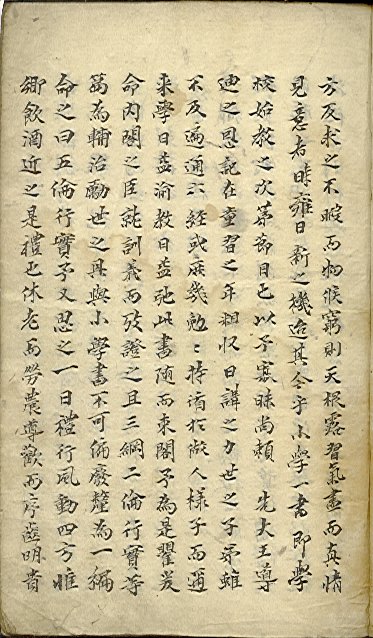 方反求之不暇而物候窮則天根露習氣盡而真情
見意者時雍日新之機迨其今乎小學一書即學
校始教之次第節目也以予寡昧尚頼 先大王導
迪之恩記在童習之年粗收日講之力世之子弟雖
不及遍通六經或庶幾勉〻持循於做人樣子而邇
來學日益渝教日益弛此書随而束閣予為是瞿爰
命內閣之臣疏訓義而攷證之且三綱二倫行實等
篇為輔治勵世之具與小學書不可偏廢釐為一編
命之曰五倫行實予又思之一日禮行風動四方惟
鄉飲酒近之是禮也休老而勞農尊歡而序齒明貴